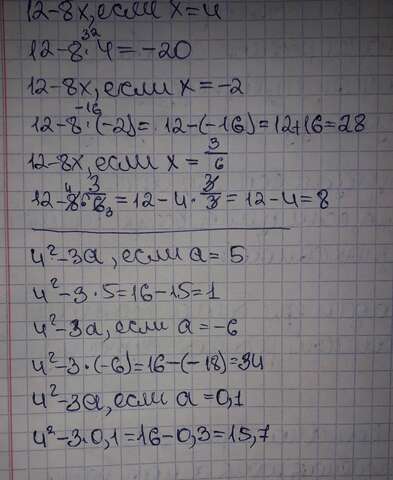 12-8x, если x=4
32
12-8·4=-20
12-8x, если x=-2
-16
12-8·(-2)= 12-(-16)=12+16=28
12-8x, если x= 3/6
12-8·3/6=12-4·3/3=12-4=8
4²-3a, если a=5
4²-3·5=16-15=1
4²-3a, если a=-6
4²-3·(-6)=16-(-18)=34
4²-3a, если a=0,1
4²-3·0,1=16-0,3=15,7